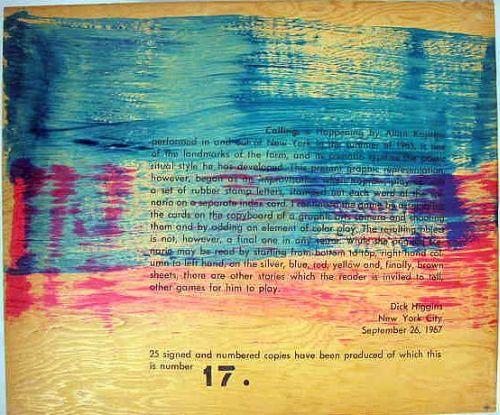 Calling, a Happening by Allan Kaprow
performed in and out of New York in the summer of 1965, is one
of the landmarks of the form, and its scenario typifies the poetic
ritual style he has developed. This present graphic representation
however, began as a
a set of rubber stamp letters, stamped out each word of the
nario on a separate index card. I continued the game by
the cards on the copyboard of a graphic arts camera and shooting
them and by adding an element of color play. The resulting object
is not, however, a final one in any sense. While the
nario may be read by starting from bottom to top, right hand col-
umn to left hand, on the silver, blue, red, yellow and, finally, brown
sheets, there are other stories which the reader is invited to tell,
other games for him to play.
Dick Higgins
New York City
September 26, 1967
25 signed and numbered copies have been produced of which this
is number 17.